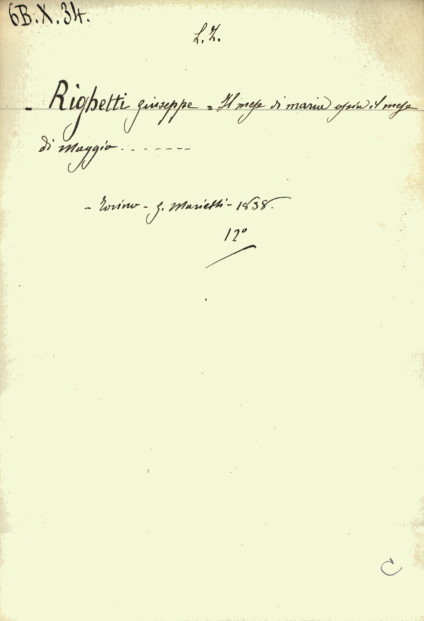 6B.X.34.
L.Z.
- Righetti Giuseppe = Il mese di maria ossia il mese
di Maggio . . . . . . .
- Torino - G. Marietti - 1838.
12º
C